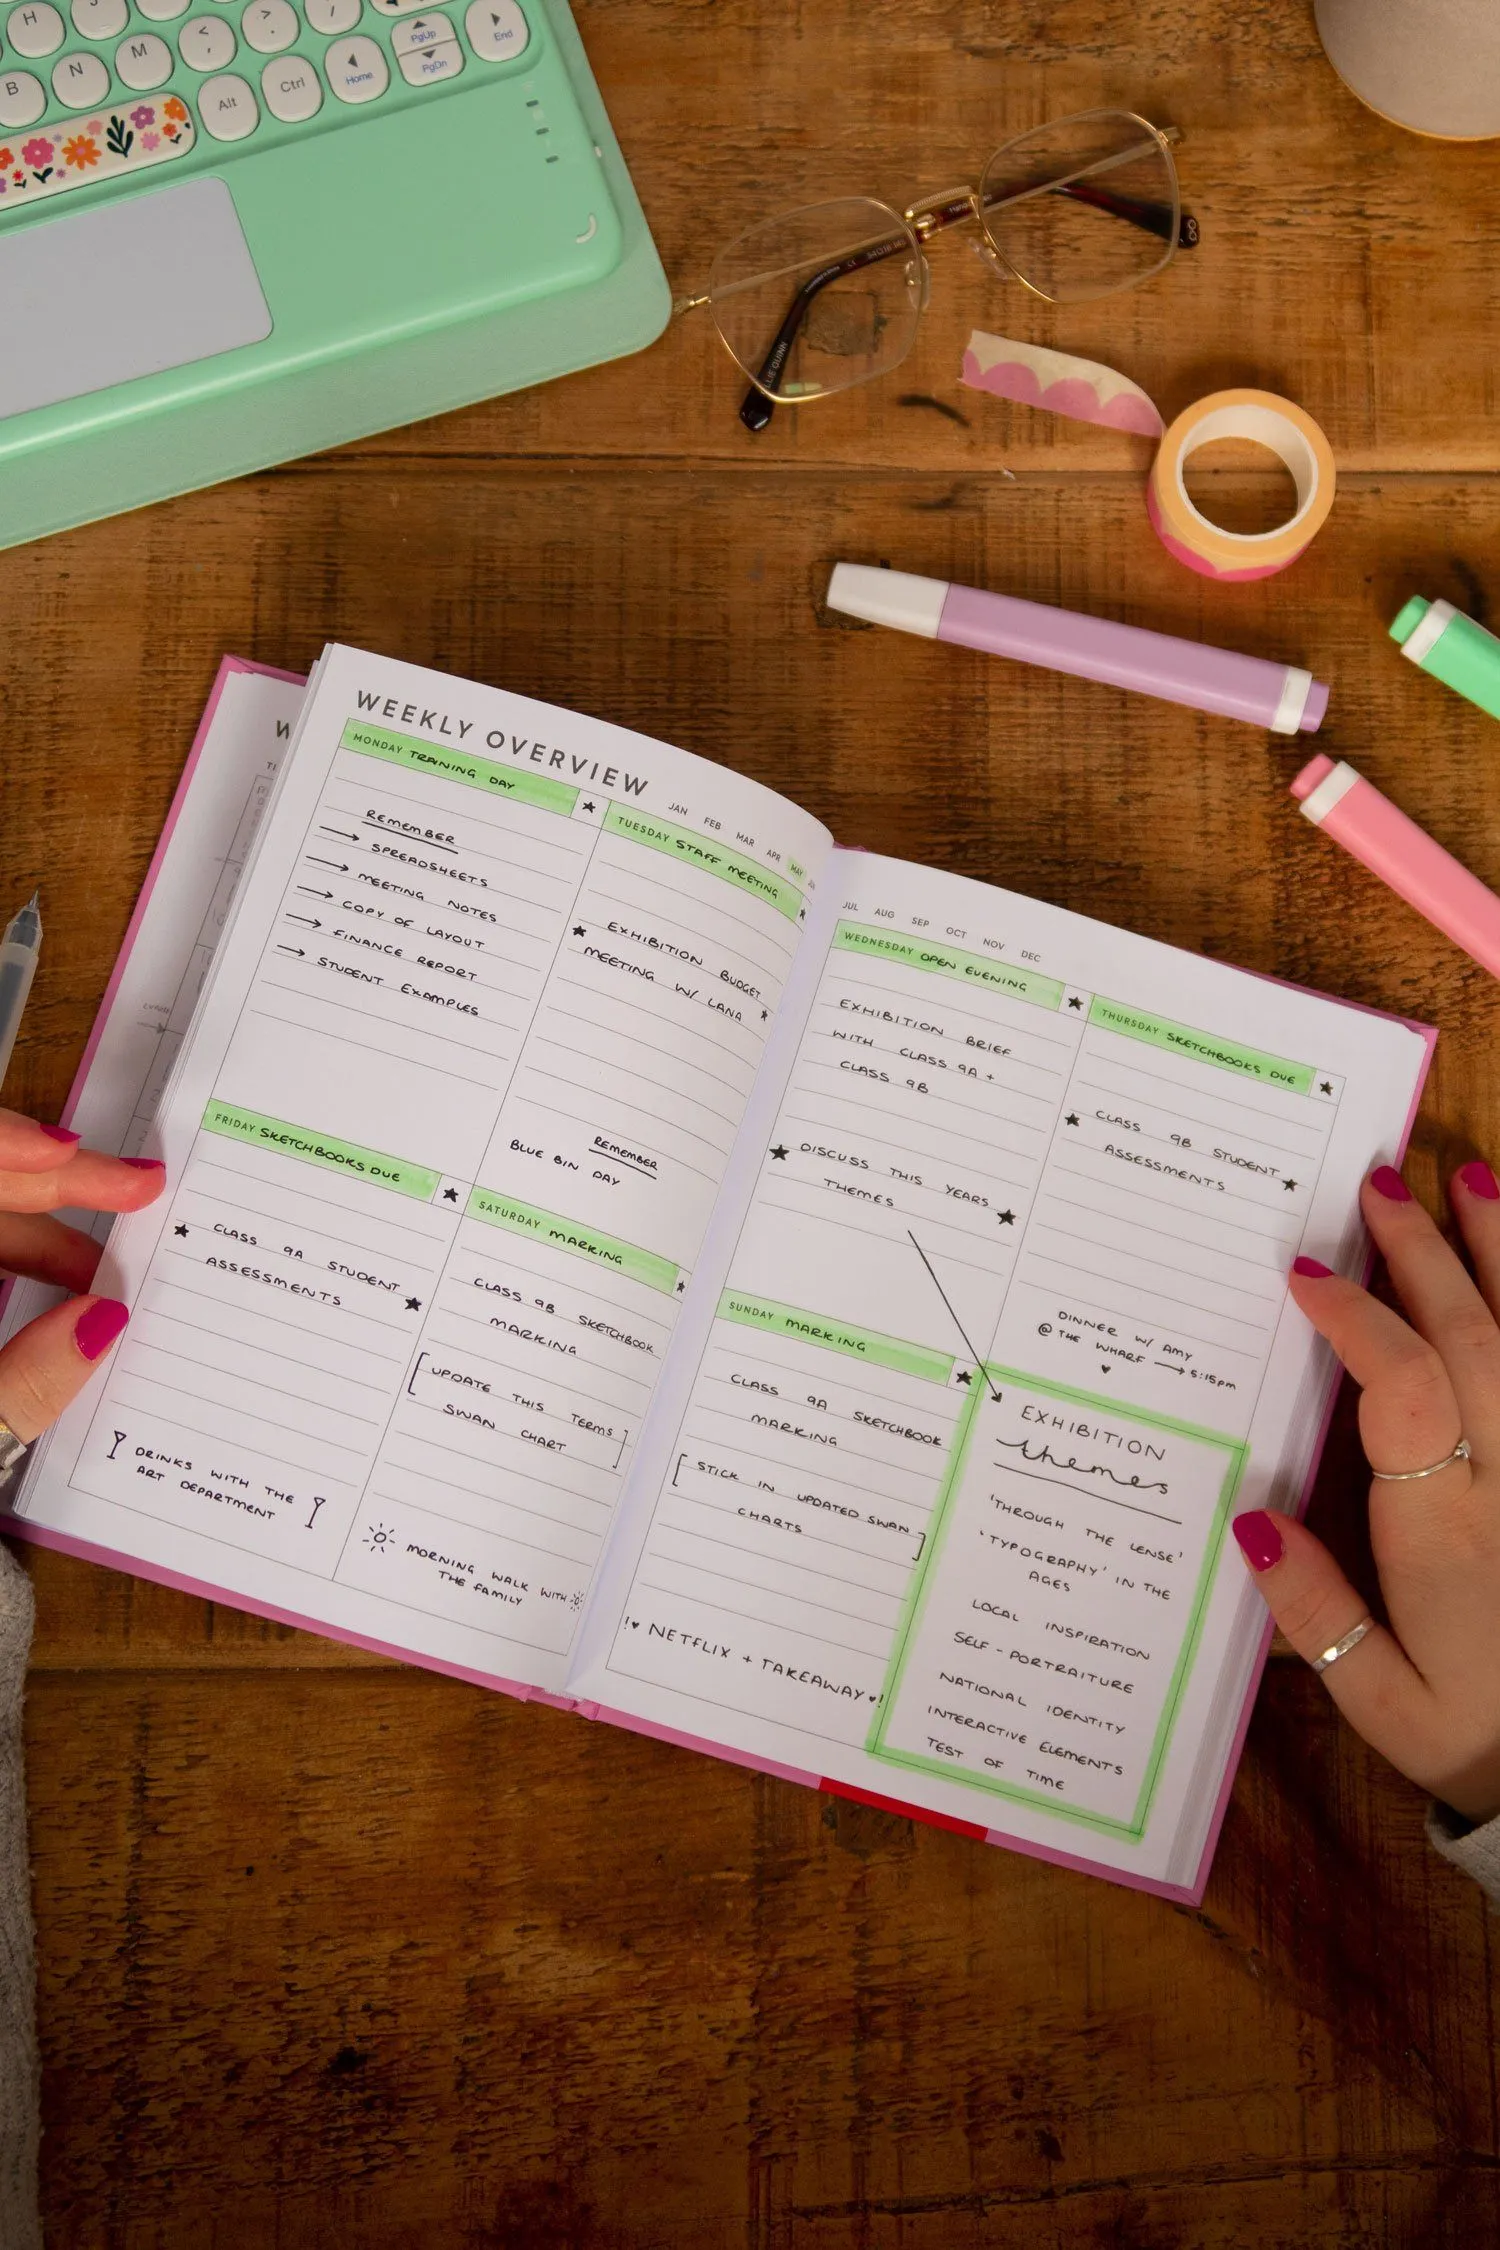 H
B
N
M
<
,
>
.
/
Alt
Ctrl
Home
PgUp
PgDn
End
WEEKLY OVERVIEW
JAN FEB MAR APR MAY
MONDAY TRAINING DAY
REMEMBER
SPREADSHEETS
MEETING NOTES
COPY OF LAYOUT
FINANCE REPORT
STUDENT EXAMPLES
TUESDAY STAFF MEETING
EXHIBITION BUDGET
MEETING W/ LANA
REMEMBER
BLUE BIN DAY
JUL AUG SEP OCT NOV DEC
WEDNESDAY OPEN EVENING
EXHIBITION BRIEF
WITH CLASS 9A +
CLASS 9B
DISCUSS THIS YEARS
THEMES
THURSDAY SKETCHBOOKS DUE
CLASS 9B STUDENT
ASSESSMENTS
DINNER W/ AMY
@ THE WHARF → 5:15pm
FRIDAY SKETCHBOOKS DUE
CLASS 9A STUDENT
ASSESSMENTS
DRINKS WITH THE
ART DEPARTMENT
SATURDAY MARKING
CLASS 9B SKETCHBOOK
MARKING
[UPDATE THIS TERMS
SWAN CHART]
MORNING WALK WITH
THE FAMILY
SUNDAY MARKING
CLASS 9A SKETCHBOOK
MARKING
[STICK IN UPDATED SWAN
CHARTS]
!♥ NETFLIX + TAKEAWAY ♥!
EXHIBITION
themes
'THROUGH THE LENSE'
'TYPOGRAPHY' IN THE
AGES
LOCAL INSPIRATION
SELF-PORTRAITURE
NATIONAL IDENTITY
INTERACTIVE ELEMENTS
TEST OF TIME